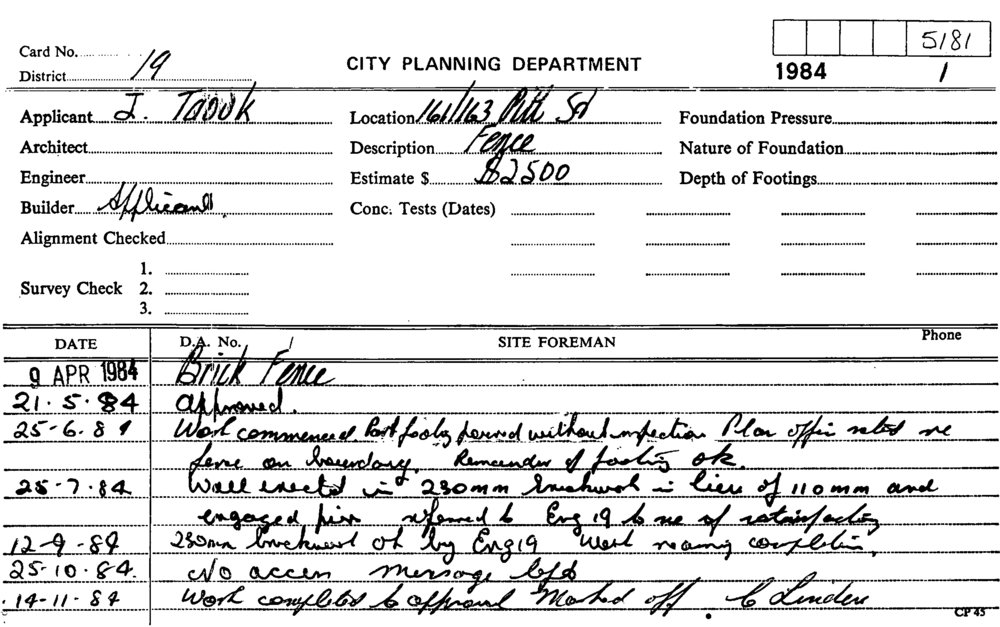 5181
Card No.
19
District
CITY PLANNING DEPARTMENT
1984 1
Applicant J. Taouk
Location 161/163 Pitt St
Foundation Pressure
Architect
Description Fence
Nature of Foundation
Engineer
Estimate $ $2500
Depth of Footings
Builder Applicant.
Conc. Tests (Dates)
Alignment Checked
1.
Survey Check 2.
3.
DATE D.A. No. / SITE FOREMAN Phone
9 APR 1984 Brick Fence
21.5.84 Approved.
25-6.84 Work commenced Part footing poured without inspection Plan noted re
fence on boundary. Remainder of footing ok.
25-7.84 Wall erected in 230mm brickwork in lieu of 110mm and
engaged piers referred to Eng 19
12-9-84 230mm brickwork ok by Eng 19 Work nearing completion.
25-10-84. No access message left
14-11-84 Work completed to approval Marked off. C Linden
CP 45